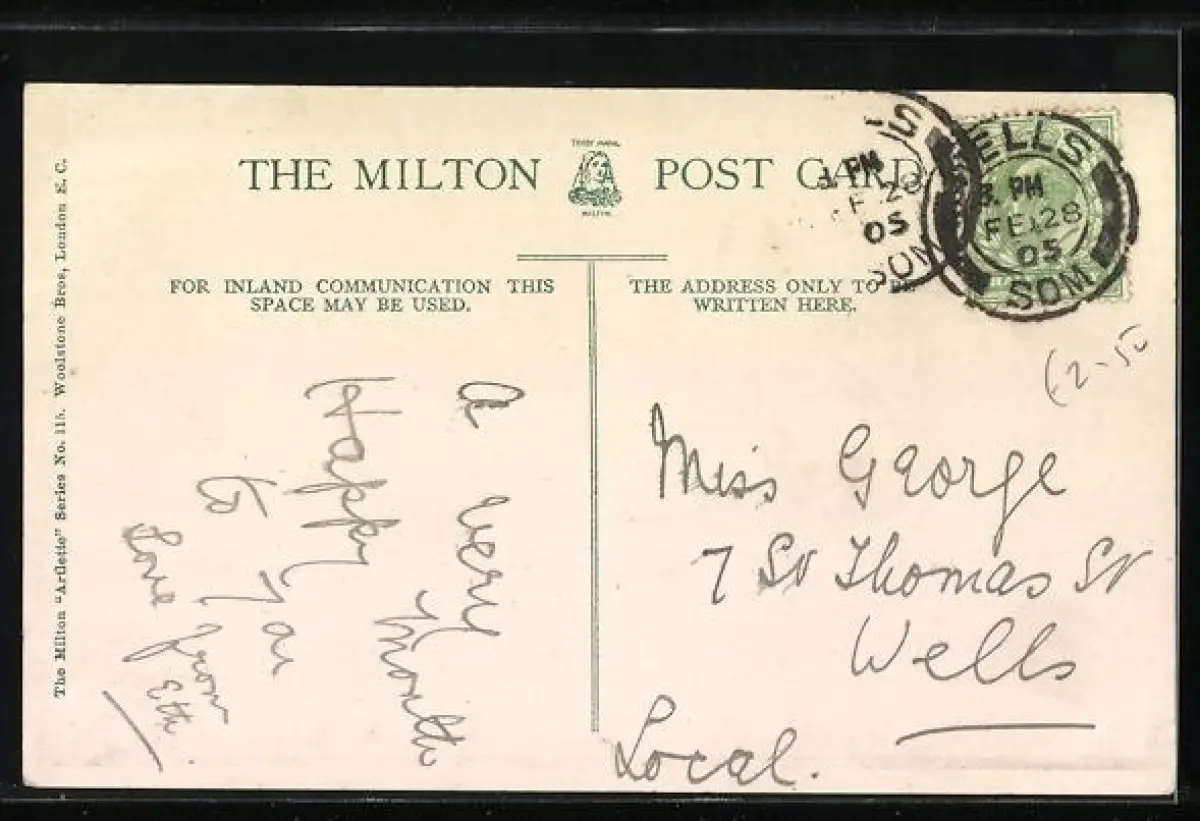 THE MILTON POST CARD
TRADE MARK
MILTON
FOR INLAND COMMUNICATION THIS
SPACE MAY BE USED.
THE ADDRESS ONLY TO BE
WRITTEN HERE.
WELLS
3. PM
FE 28
05
SOM
S
PM
F 28
05
SOM
The Milton "Artlette" Series No. 115. Woolstone Bros, London E. C.
a very
Happy Month
to
Love from
Eth
Miss George
7 St Thomas St
Wells
Local.